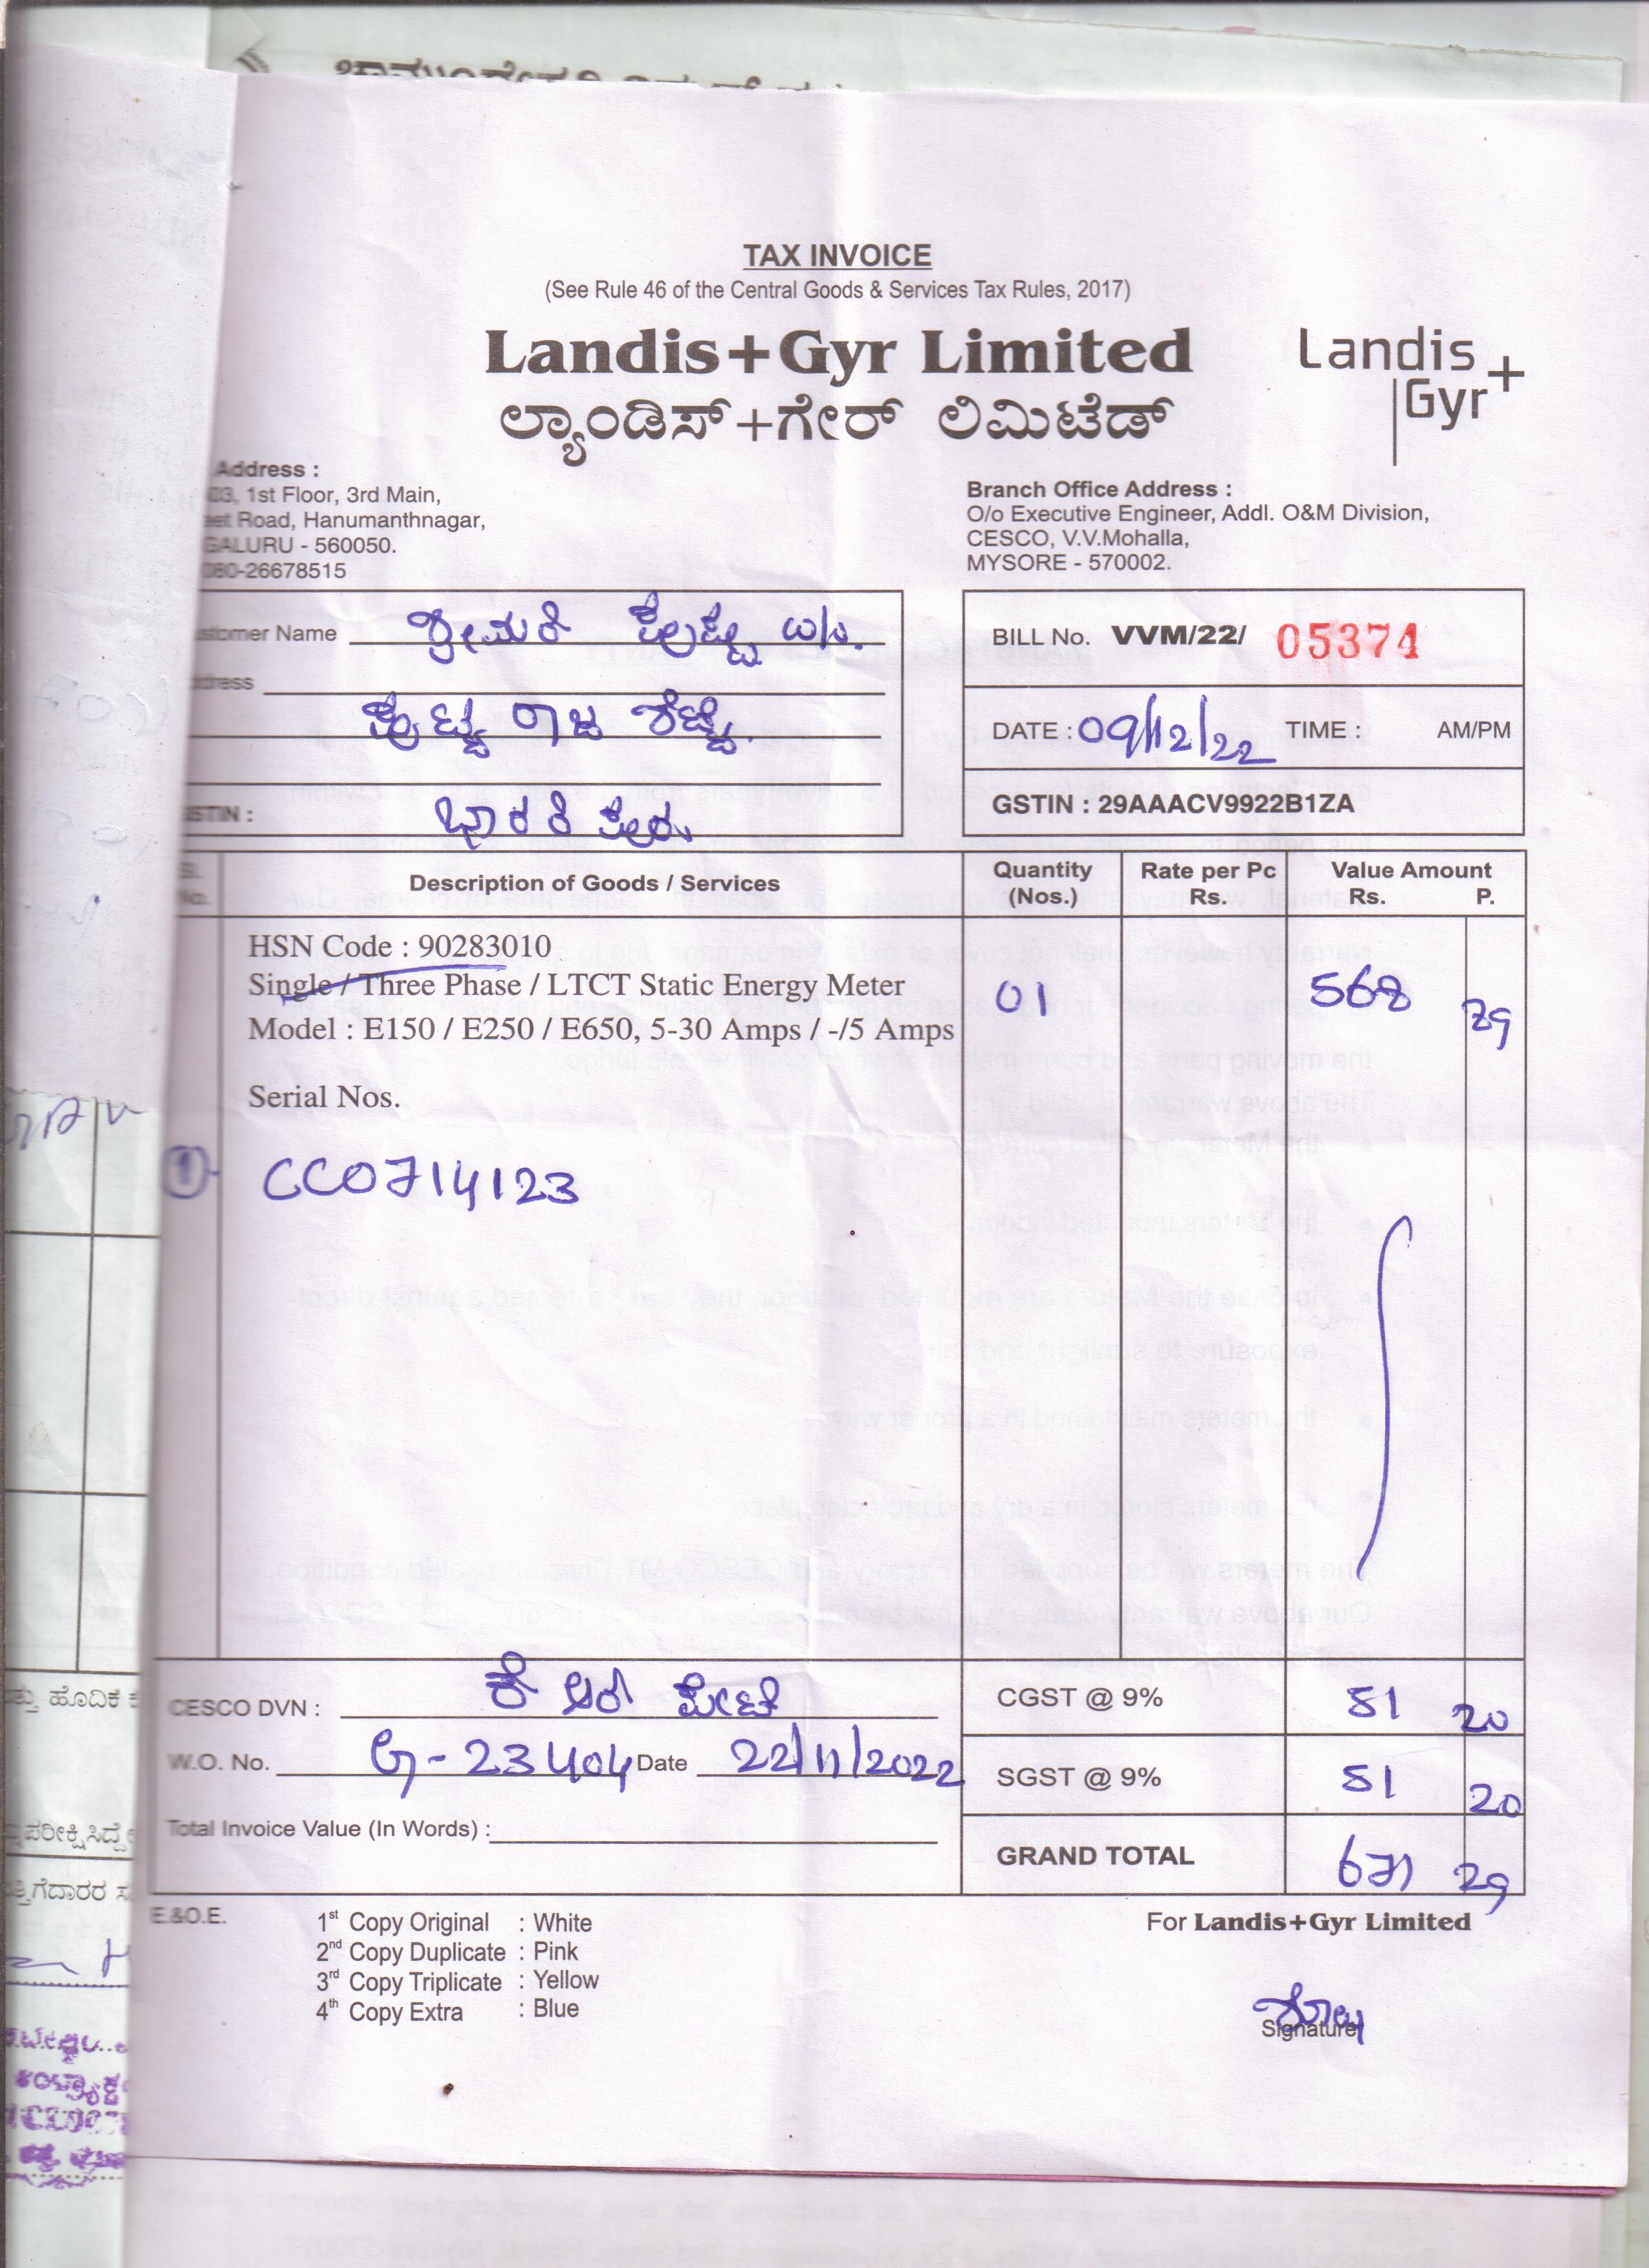 TAX INVOICE
(See Rule 46 of the Central Goods & Services Tax Rules, 2017)
Landis+Gyr Limited
ಲ್ಯಾಂಡಿಸ್+ಗೇರ್ ಲಿಮಿಟೆಡ್
Landis
Gyr+
Address :
03, 1st Floor, 3rd Main,
eet Road, Hanumanthnagar,
GALURU - 560050.
080-26678515
Branch Office Address :
O/o Executive Engineer, Addl. O&M Division,
CESCO, V.V.Mohalla,
MYSORE - 570002.
stomer Name ಶ್ರೀಮತಿ
dress
ರಾಜ ಶೆಟ್ಟಿ
STIN :
BILL No. VVM/22/ 05374
DATE : 09/12/22 TIME : AM/PM
GSTIN : 29AAACV9922B1ZA
Sl. No. Description of Goods / Services Quantity (Nos.) Rate per Pc Rs. Value Amount Rs. P.
HSN Code : 90283010
Single / Three Phase / LTCT Static Energy Meter 01 568 29
Model : E150 / E250 / E650, 5-30 Amps / -/5 Amps
Serial Nos.
1 CC0714123
CESCO DVN : ಕೆ ಆರ್ ಪೇಟೆ
CGST @ 9% 51 20
W.O. No. G-23404 Date 22/11/2022
SGST @ 9% 51 20
Total Invoice Value (In Words) :
GRAND TOTAL 671 29
E.&O.E.
1st Copy Original : White
2nd Copy Duplicate : Pink
3rd Copy Triplicate : Yellow
4th Copy Extra : Blue
For Landis+Gyr Limited
Signature